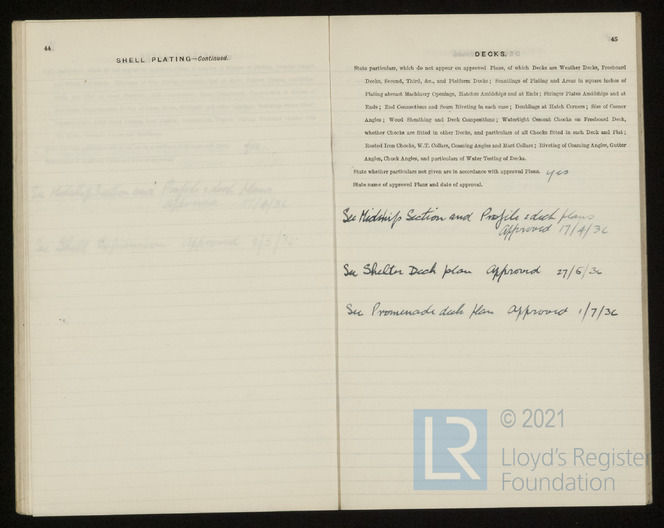 44
SHELL PLATING—Continued.
45
DECKS.
State particulars, which do not appear on approved Plans, of which Decks are Weather Decks, Freeboard
Decks, Second, Third, &c., and Platform Decks; Scantlings of Plating and Areas in square inches of
Plating abreast Machinery Openings, Hatches Amidships and at Ends; Stringer Plates Amidships and at
Ends; End Connections and Seam Riveting in each case; Doublings at Hatch Corners; Size of Corner
Angles; Wood Sheathing and Deck Compositions; Watertight Cement Chocks on Freeboard Deck,
whether Chocks are fitted in other Decks, and particulars of all Chocks fitted in each Deck and Flat;
Boxted Iron Chocks, W.T. Collars, Coaming Angles and Mast Collars; Riveting of Coaming Angles, Gutter
Angles, Chock Angles, and particulars of Water Testing of Decks.
State whether particulars not given are in accordance with approved Plans. yes
State name of approved Plans and date of approval.
See Midship Section and Profile & deck plans
Approved 17/4/36
See Shelter Deck plan Approved 27/6/36
See Promenade deck plan Approved 1/7/36
LR
© 2021
Lloyd's Register
Foundation